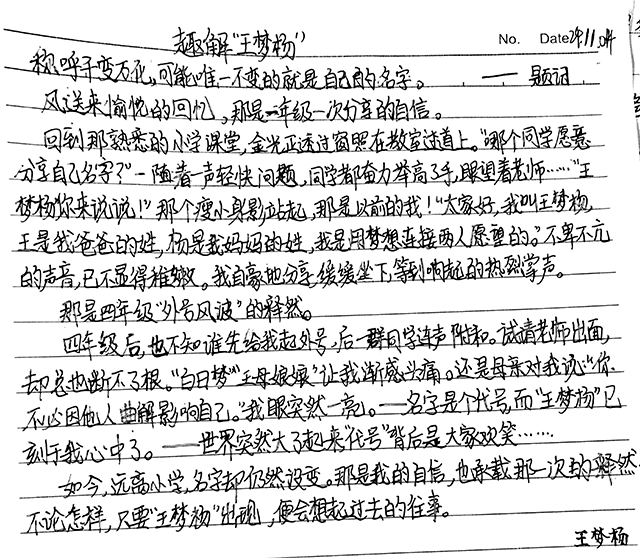 趣解"王梦杨"
No. Date 24.11.04
称呼千变万化,可能唯一不变的就是自己的名字。 —— 题记
风送来愉悦的回忆,那是一年级一次分享的自信。
回到那熟悉的小学课堂,金光正透过窗照在教室过道上。"哪个同学愿意
分享自己名字?"一随着一声轻快问题,同学都奋力举高了手,眼望着老师……"王
梦杨你来说说!"那个瘦小身影站起,那是以前的我!"大家好,我叫王梦杨,
王是我爸爸的姓,杨是我妈妈的姓,我是用梦想连接两人愿望的。"不卑不亢
的声音,已不显得稚嫩。我自豪地分享,缓缓坐下,等到响起的热烈掌声。
那是四年级"外号风波"的释然。
四年级后,也不知谁先给我起外号,后一群同学连声附和。试请老师出面,
却总也断不了根。"白日梦""王母娘娘"让我渐感头痛。还是母亲对我说:"你
不必因他人曲解影响自己。"我眼突然一亮。——名字是个代号,而"王梦杨"已
刻于我心中了。——世界突然大了起来,"代号"背后是大家欢笑……
如今,远离小学,名字却仍然没变。那是我的自信,也承载那一次的释然
不论怎样,只要"王梦杨"出现,便会想起过去的往事。
王梦杨